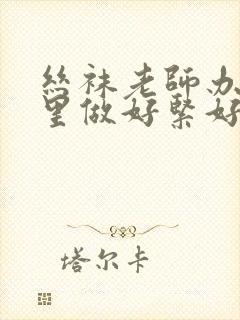 絲袜老師办
里做好緊好
塔尔卡